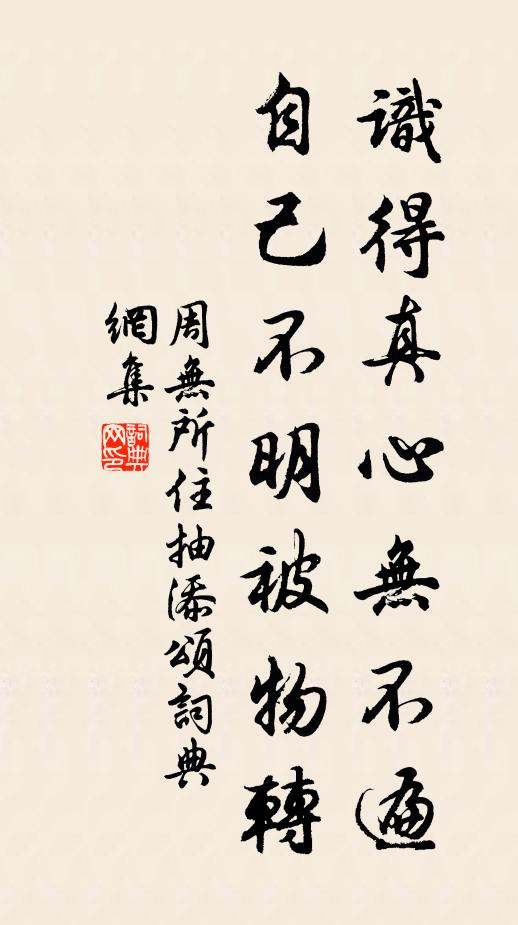 識得真心無不遍
自己不明被物轉
周無所住抽添頌詞典
網集
詞典網印